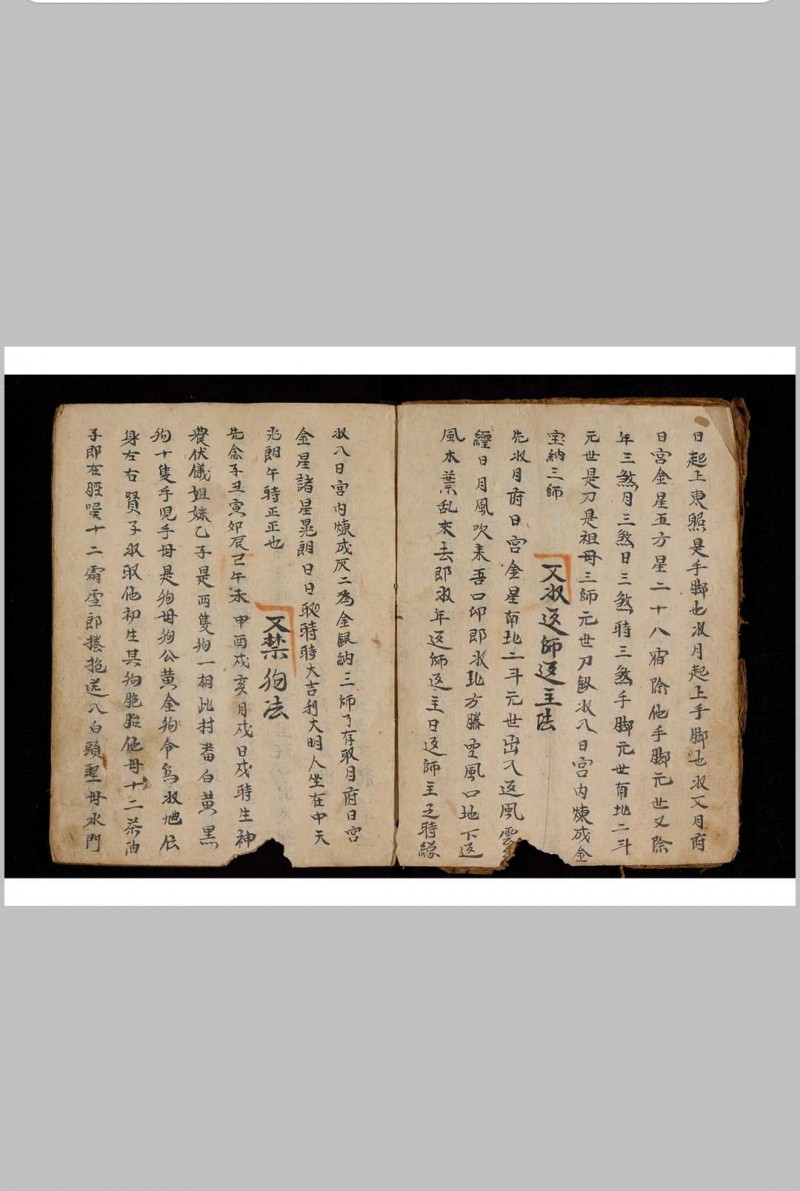 日起上東照是手腳也收月起上手腳也收又月府
日宮金星五方星二十八宿除他手腳元世又除
年三煞月三煞日三煞時三煞手腳元世南北二斗
元世是刀是祖母三師元世刀収八日宮內煉成金
宝納三師
又收返師返主法
先收月府日宮金星南北二斗元世出入返風雲
經日月風吹来吾口即收北方勝風口地下返
風木葉乱來去即收年返師返主日返師主之時
收八日宮內煉成灰二為金銀納三師了存取月府日宮
金星諸星晃朗日日時時大吉利大明人坐在中天
光朗午時正正也
又禁狗法
先念子丑寅卯辰己午未申酉戍亥月戍日戍時生神
農伏儀姐妹乙子是两隻狗一相此村番白黃黑
狗十隻手児手母是狗母狗公黃金狗令為收地
身左右賢子收取他初生其狗胞胎他母十二茶油
子即在十二霜雪郎捲抱送八白頭聖母水門